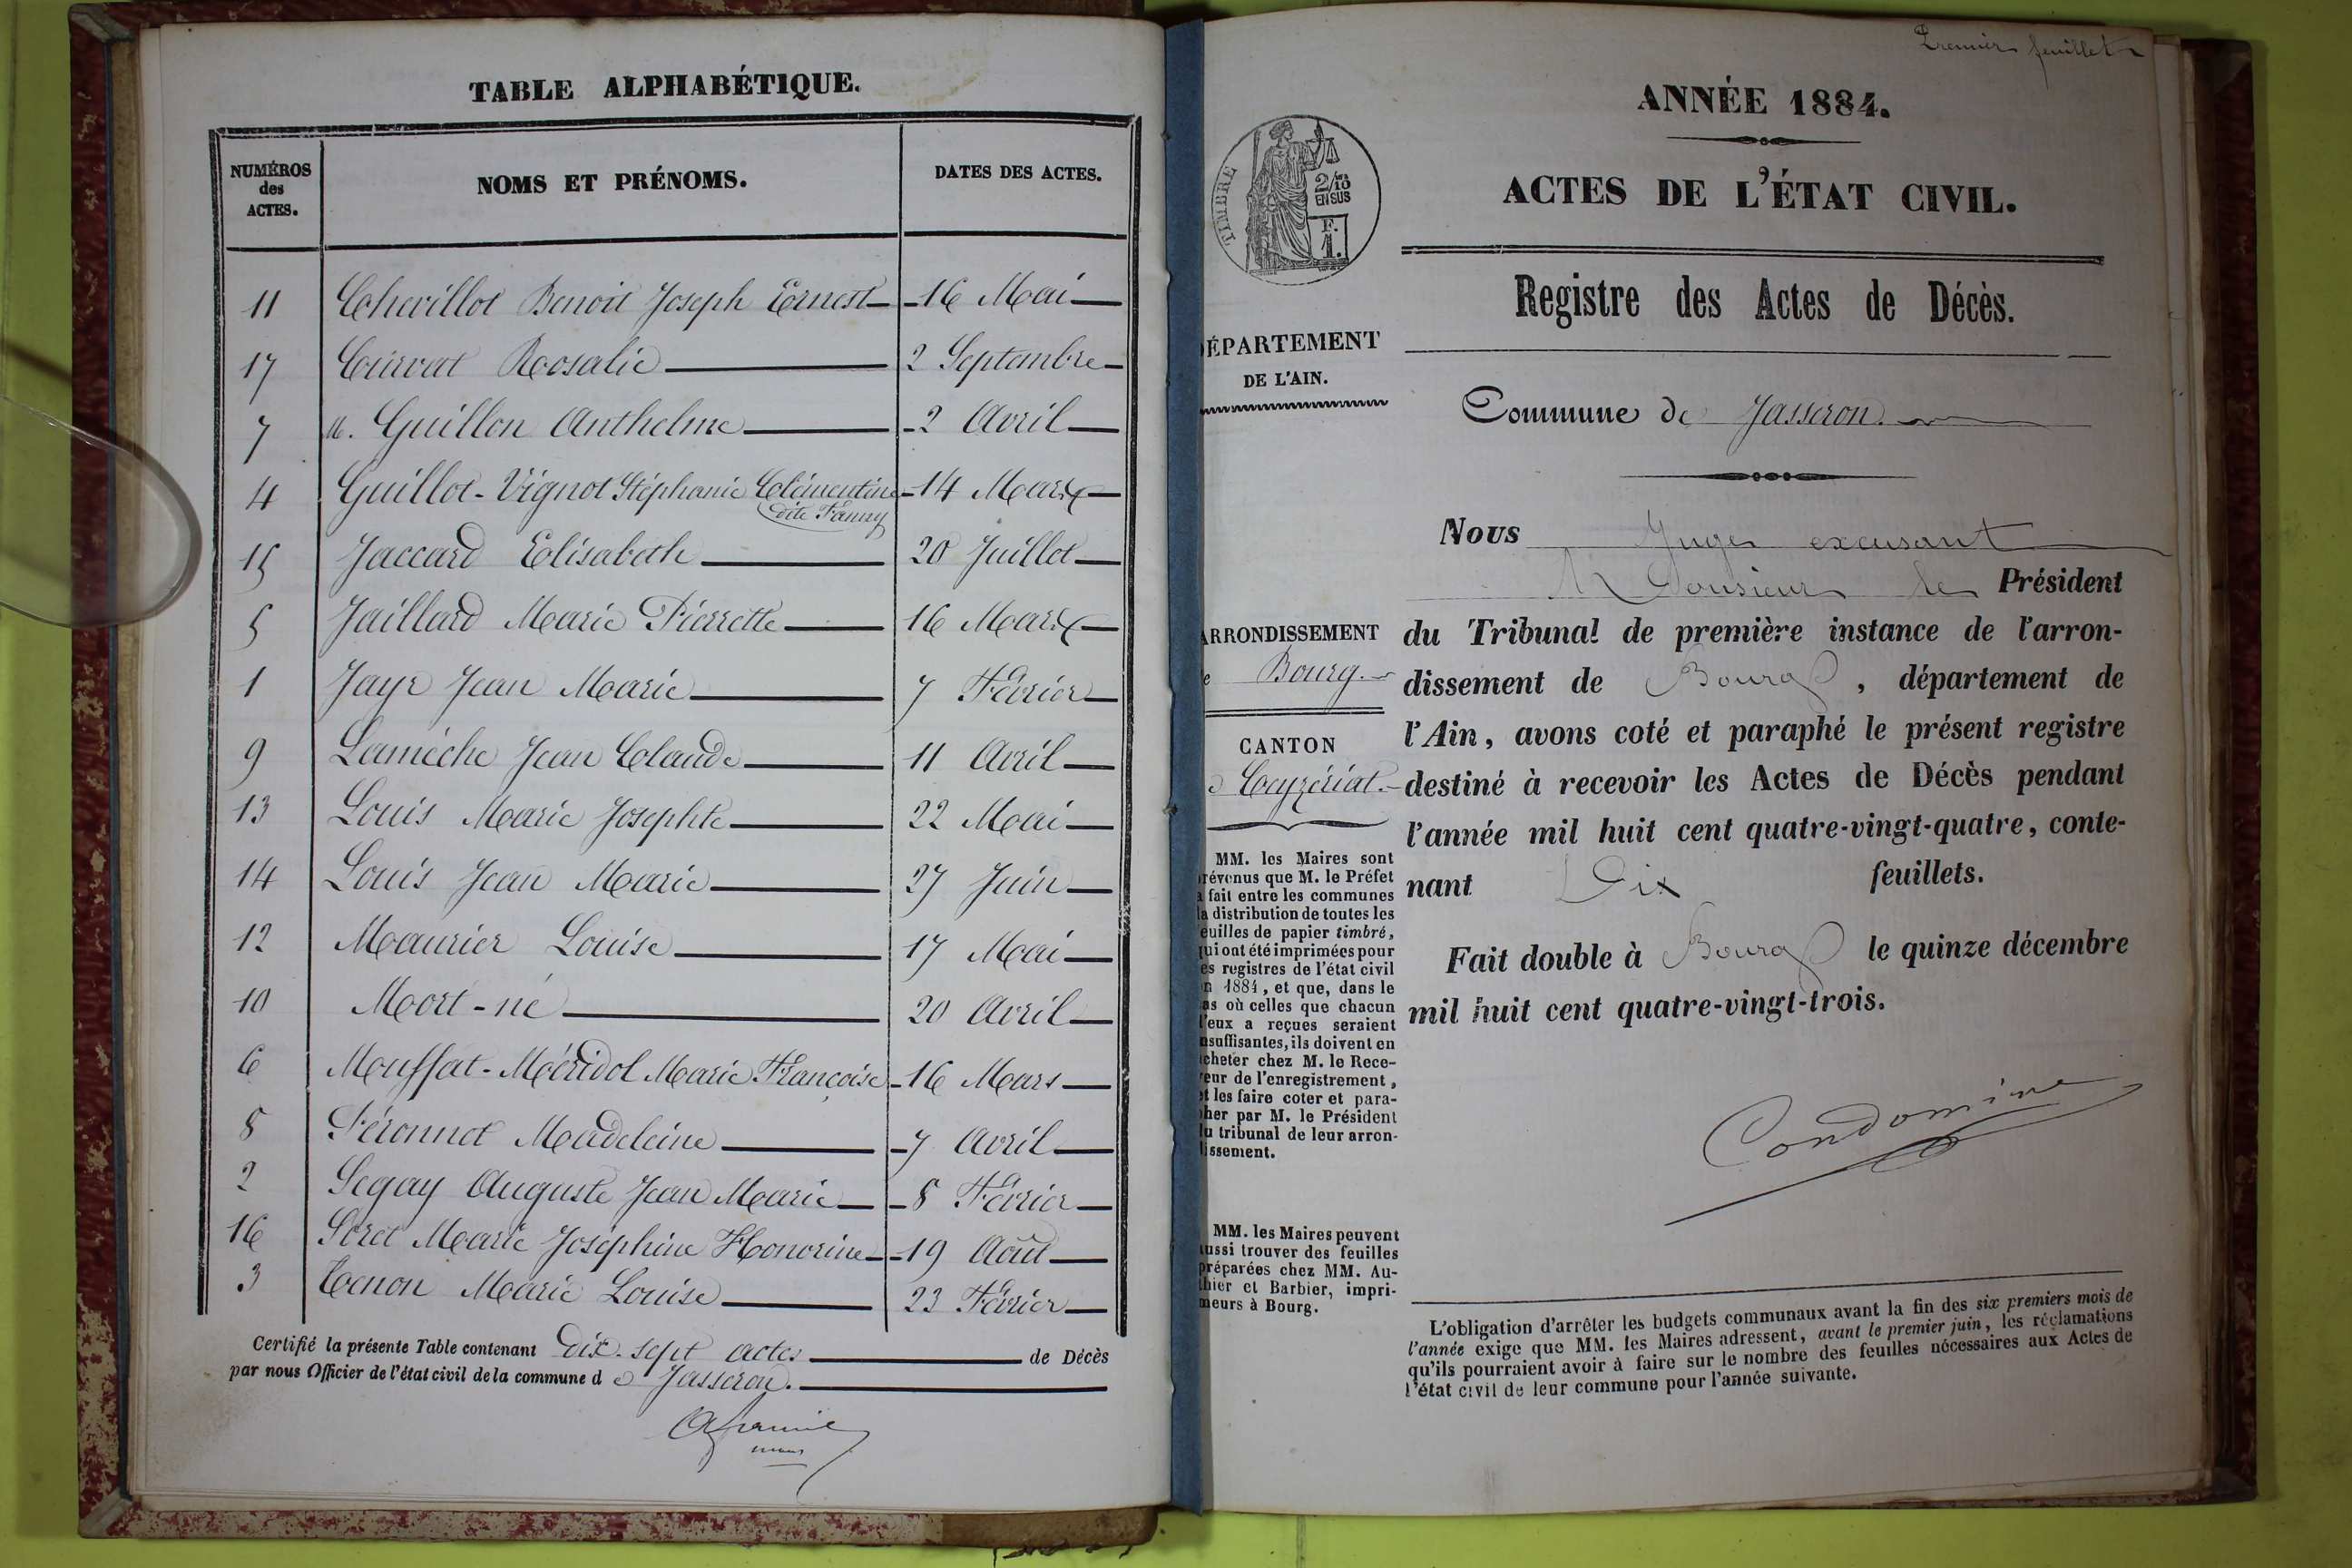 TABLE ALPHABÉTIQUE.
NUMÉROS des ACTES. NOMS ET PRÉNOMS. DATES DES ACTES.
11 Chevillot Benoit Joseph Ernest 16 Mai
17 Curvat Rosalie 2 Septembre
7 M. Guillon Anthelme 2 Avril
4 Guillot-Vignot Stéphanie Clémentine 14 Mars
dite Fanny
15 Jaccard Elisabeth 20 Juillet
5 Jaillard Marie Pierrette 16 Mars
1 Jayr Jean Marie 7 Février
9 Lamèche Jean Claude 11 Avril
13 Louis Marie Josephte 22 Mai
14 Louis Jean Marie 27 Juin
12 Maurier Louise 17 Mai
10 Mort-né 20 Avril
6 Mouffat-Méridol Marie Françoise 16 Mars
8 Péronnet Madeleine 7 Avril
2 Segay Auguste Jean Marie 8 Février
16 Soret Marie Joséphine Honorine 19 Août
3 Tenon Marie Louise 23 Février
Certifié la présente Table contenant dix-sept actes de Décès
par nous Officier de l'état civil de la commune de Jasseron.
Premier feuillet
ANNÉE 1884.
ACTES DE L'ÉTAT CIVIL.
Registre des Actes de Décès.
TIMBRE
2/10
EN SUS
F.
1.
DÉPARTEMENT
DE L'AIN.
Commune de Jasseron.
ARRONDISSEMENT
de Bourg.
CANTON
de Ceyzériat.
MM. les Maires sont
prévenus que M. le Préfet
a fait entre les communes
la distribution de toutes les
feuilles de papier timbré,
qui ont été imprimées pour
les registres de l'état civil
en 1884, et que, dans le
cas où celles que chacun
d'eux a reçues seraient
insuffisantes, ils doivent en
acheter chez M. le Rece-
veur de l'enregistrement,
et les faire coter et para-
pher par M. le Président
du tribunal de leur arron-
dissement.
MM. les Maires peuvent
aussi trouver des feuilles
préparées chez MM. Au-
thier et Barbier, impri-
meurs à Bourg.
Nous Juge excusant
Monsieur le Président
du Tribunal de première instance de l'arron-
dissement de Bourg, département de
l'Ain, avons coté et paraphé le présent registre
destiné à recevoir les Actes de Décès pendant
l'année mil huit cent quatre-vingt-quatre, conte-
nant Dix feuillets.
Fait double à Bourg le quinze décembre
mil huit cent quatre-vingt-trois.
Condomine
L'obligation d'arrêter les budgets communaux avant la fin des six premiers mois de
l'année exige que MM. les Maires adressent, avant le premier juin, les réclamations
qu'ils pourraient avoir à faire sur le nombre des feuilles nécessaires aux Actes de
l'état civil de leur commune pour l'année suivante.